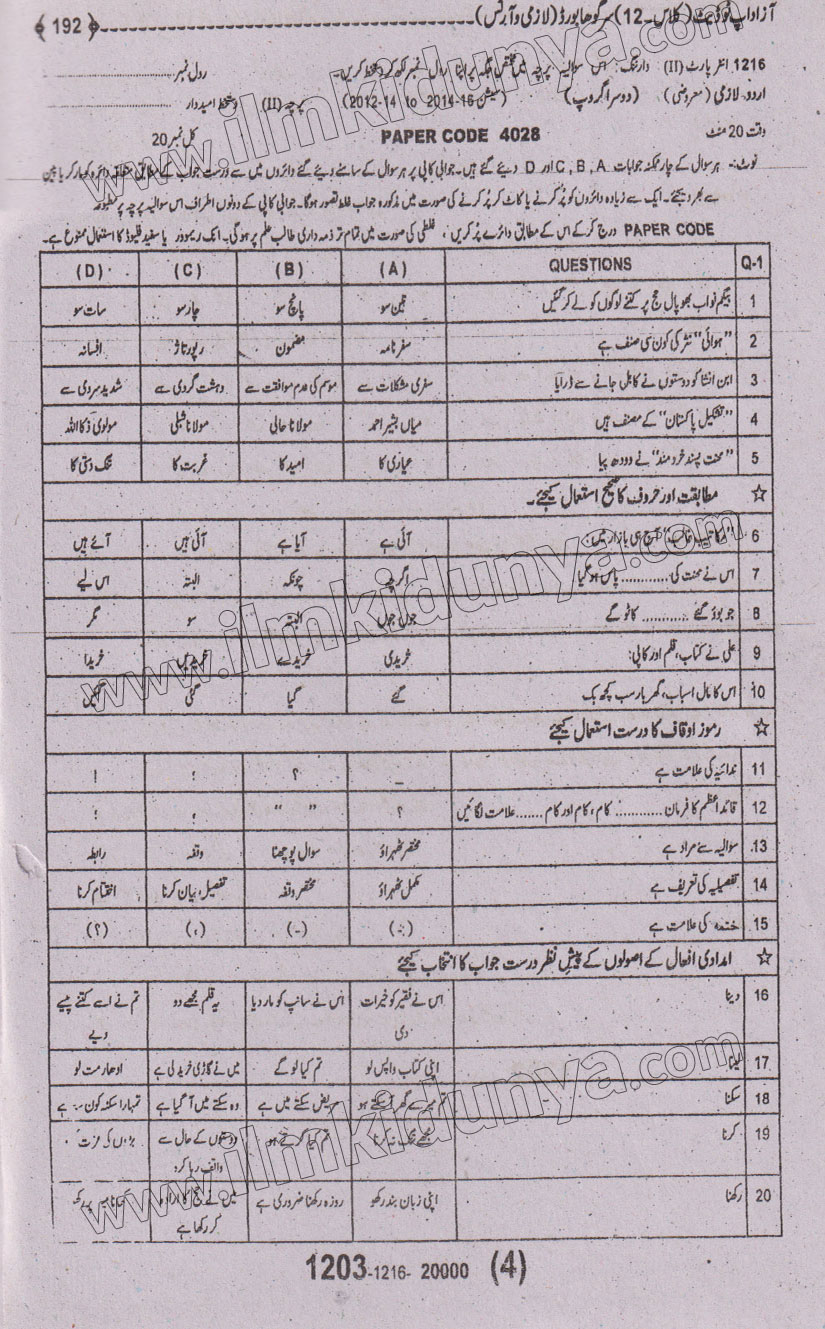 آزاد اپ ٹو ڈیٹ (کلاس۔12) سرگودھا بورڈ (لازمی و آرٹس) ﴿192﴾
1216 انٹر پارٹ (II) وارننگ: اس سوالیہ پرچہ میں مختص جگہ پر اپنا رول نمبر لکھ کر دستخط کریں۔ رول نمبر
اردو لازمی (معروضی) (دوسرا گروپ) (سیشن 2012-14 to 2014-16) پرچہ (II) دستخط امیدوار
وقت 20 منٹ PAPER CODE 4028 کل نمبر 20
نوٹ:۔ ہر سوال کے چار ممکنہ جوابات C , B , A اور D دیئے گئے ہیں۔ جوابی کاپی پر ہر سوال کے سامنے دیئے گئے دائروں میں سے درست جواب کے مطابق متعلقہ دائرہ کو مارکر یا پین
سے بھر دیجئے۔ ایک سے زیادہ دائروں کو پُر کرنے یا کاٹ کر پُر کرنے کی صورت میں مذکورہ جواب غلط تصور ہوگا۔ جوابی کاپی کے دونوں اطراف اس سوالیہ پرچہ پر مطبوعہ
PAPER CODE درج کر کے اس کے مطابق دائرے پُر کریں، غلطی کی صورت میں تمام تر ذمہ داری طالب علم پر ہوگی۔ انک ریموور یا سفید فلیوڈ کا استعمال ممنوع ہے۔
Q-1 QUESTIONS (A) (B) (C) (D)
1 بیگم نواب بھوپال حج پر کتنے لوگوں کو لے کر گئیں تین سو پانچ سو چار سو سات سو
2 "ہوائی" نثر کی کون سی صنف ہے سفر نامہ مضمون رپورتاژ افسانہ
3 ابن انشا کو دوستوں نے کابل جانے سے ڈرایا سفری مشکلات سے موسم کی عدم موافقت سے دہشت گردی سے شدید سردی سے
4 "تشکیل پاکستان" کے مصنف ہیں میاں بشیر احمد مولانا حالی مولانا شبلی مولوی ذکا اللہ
5 "محنت پسند خرد مند" نے دودھ پیا عیاری کا امید کا غربت کا تنگ دستی کا
☆ مطابقت اور حروف کا صحیح استعمال کیجئے۔
6 آج ہی بازار میں: آئی ہے آیا ہے آئی ہیں آئے ہیں
7 اس نے محنت کی ............ پاس ہو گیا اگرچہ چونکہ البتہ اس لیے
8 جو بوؤ گئے ............ کاٹو گے جوں جوں البتہ سو مگر
9 علی نے کتاب، قلم اور کاپی: خریدی خریدے خریدیں خریدا
10 اس کا مال اسباب، گھر بار سب کچھ بک گئے گیا گئی گئیں
☆ رموز اوقاف کا درست استعمال کیجئے
11 ندائیہ کی علامت ہے _ ؟ ؛ !
12 قائد اعظم کا فرمان ............ کام، کام اور کام ....... علامت لگائیں ؟ " " ، ؛
13. سوالیہ سے مراد ہے مختصر ٹھہراؤ سوال پوچھنا وقفہ رابطہ
14 تفصیلیہ کی تعریف ہے مکمل ٹھہراؤ مختصر وقفہ تفصیل بیان کرنا اختتام کرنا
15 ختمہ کی علامت ہے (:) (-) (،) (؟)
☆ امدادی افعال کے اصولوں کے پیش نظر درست جواب کا انتخاب کیجئے
16 دینا اس نے فقیر کو خیرات دی اس نے سانپ کو مار دیا یہ قلم مجھے دو تم نے اسے کتنے پیسے دیے
17 لینا اپنی کتاب واپس لو تم کیا لو گے میں نے گاڑی خرید لی ہے ادھار مت لو
18 سکنا تم میرے گھر آ سکتے ہو مریض سکتے میں ہے وہ سکتے میں آ گیا ہے تمہارا سکتہ کون سا ہے
19 کرنا مجھے تنگ نہ کرنا تم کیا کرتے ہو دوستوں کے حال سے واقف رہا کرو بڑوں کی عزت
20 رکھنا اپنی زبان بند رکھو روزہ رکھنا ضروری ہے میں نے حج کا ارادہ کر رکھا ہے
1203-1216- 20000 (4)
www.ilmkidunya.com
www.ilmkidunya.com
www.ilmkidunya.com